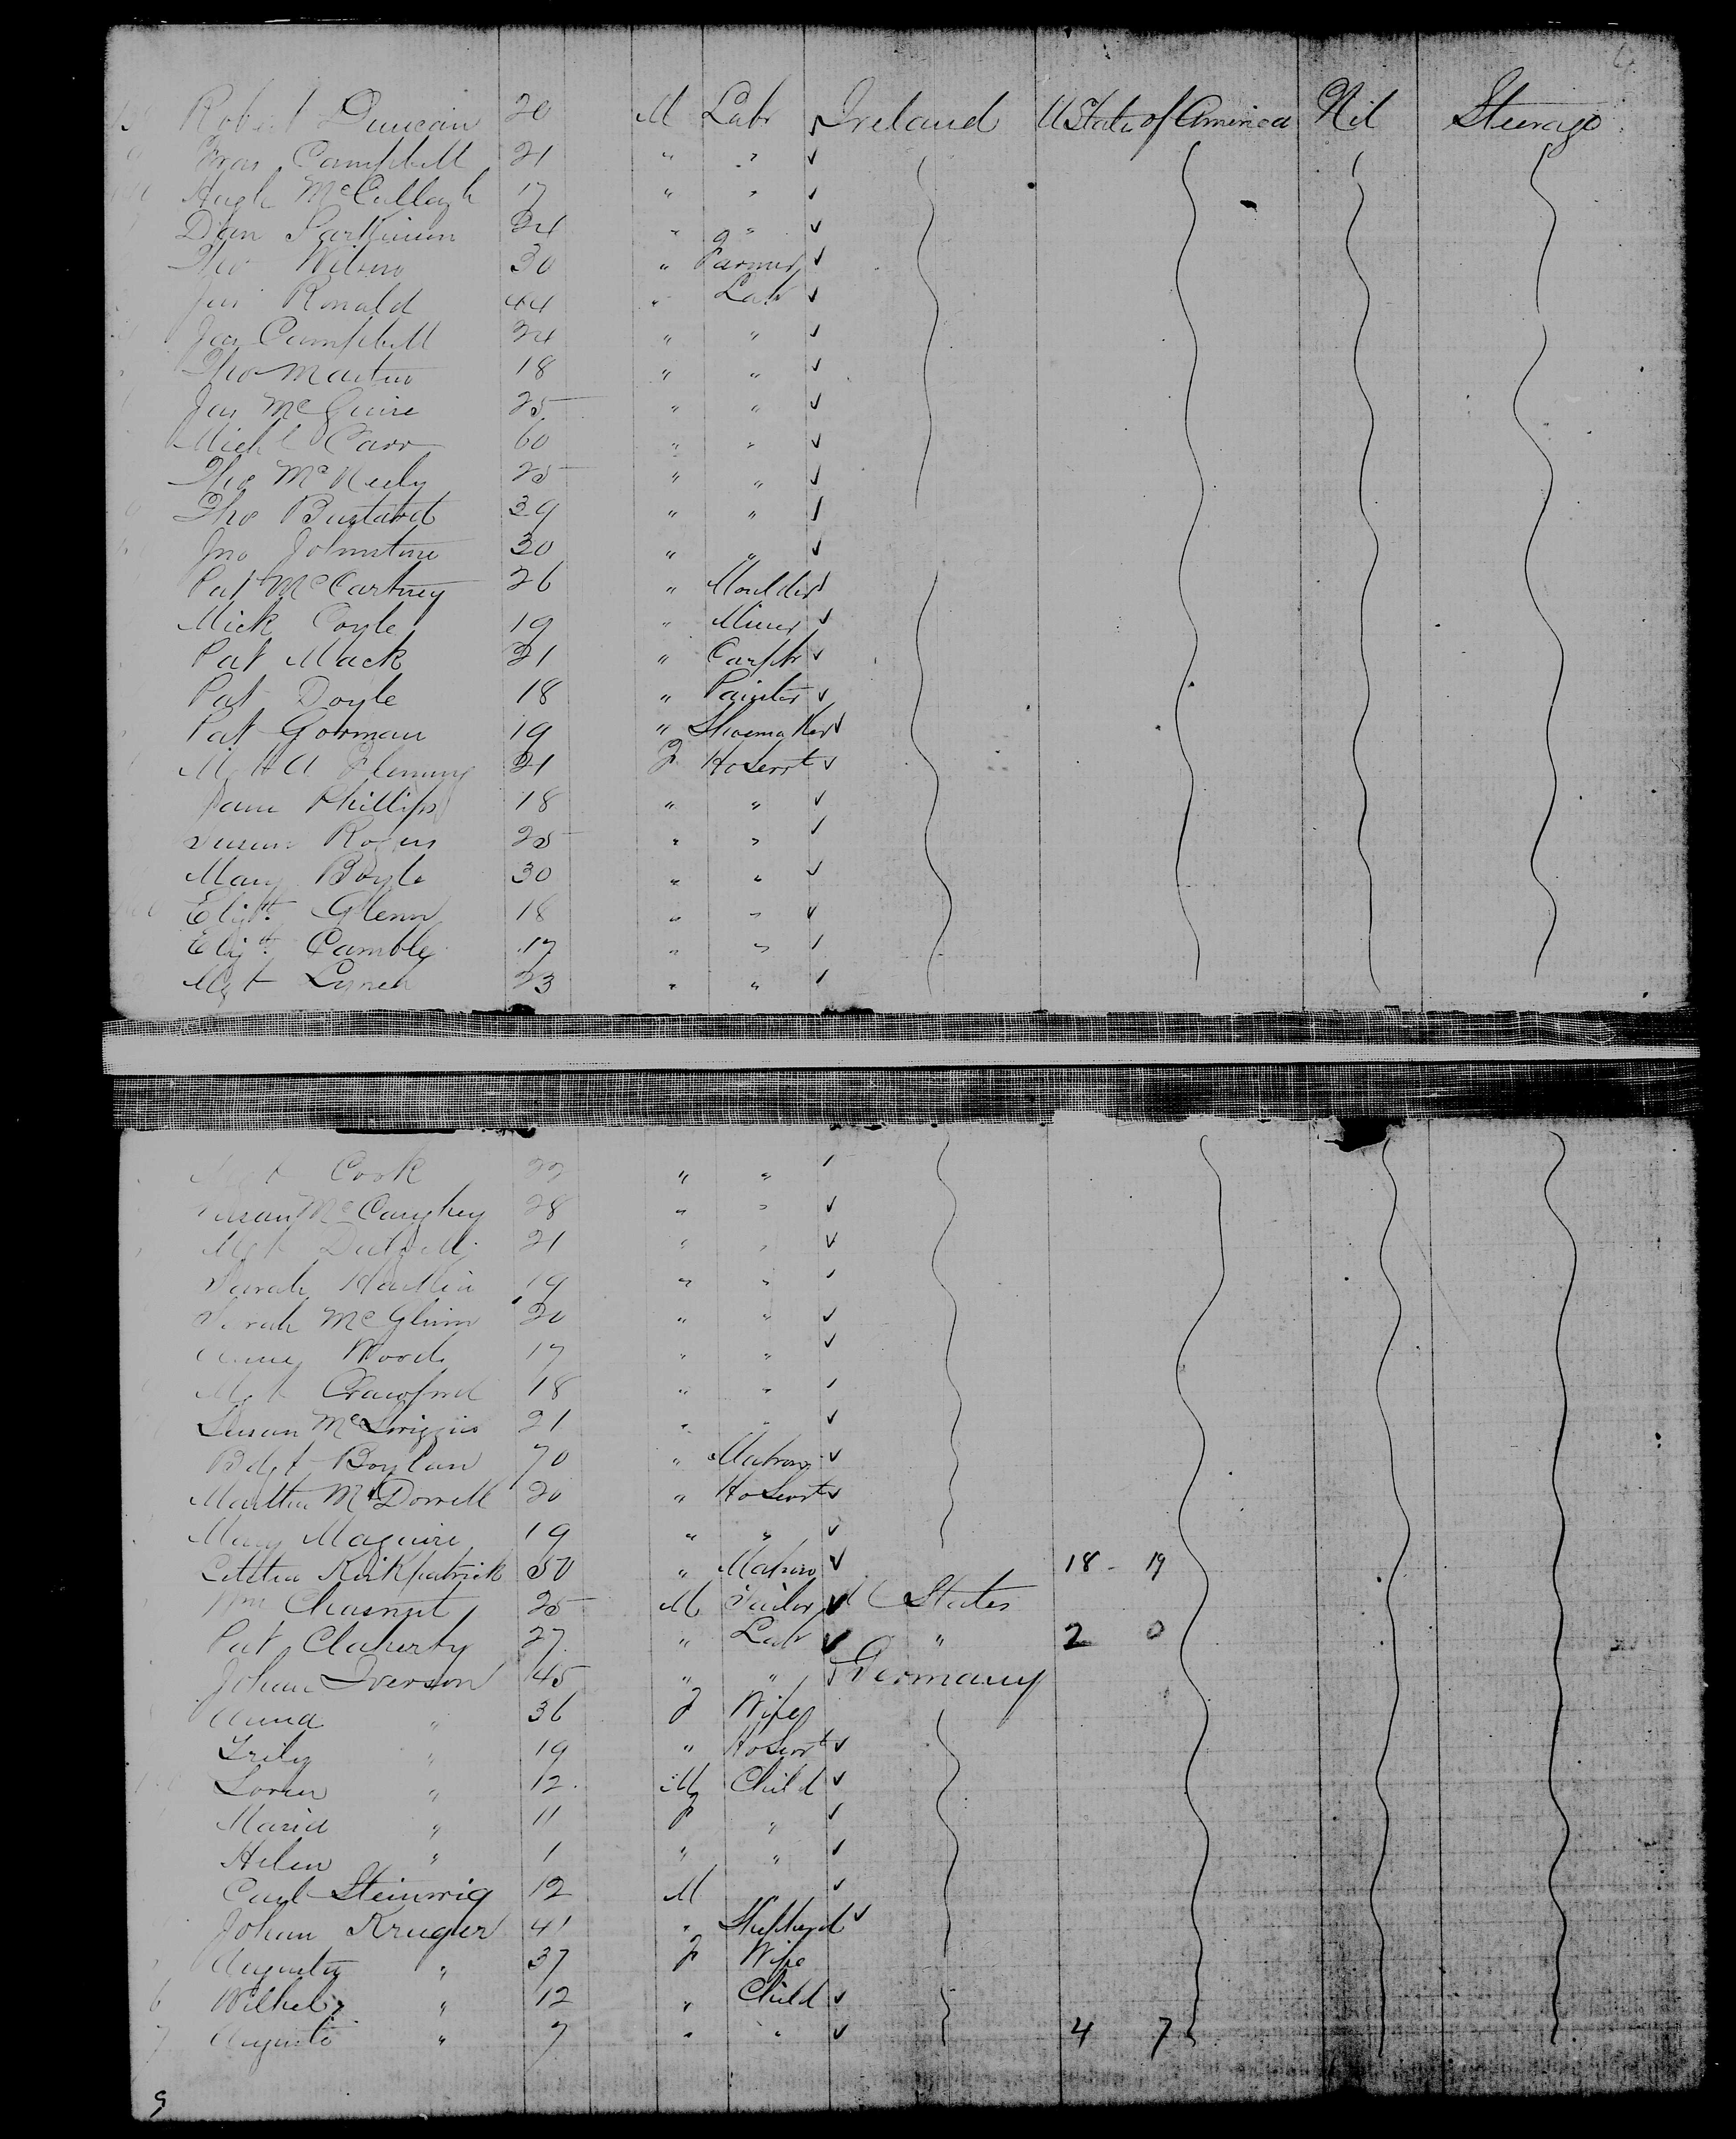 Robert Duncan 20 M Labr ✓ Ireland U States of America Nil Steerage
Fras Campbell 21 " " ✓
Hugh McCullagh 17 " " ✓
Dan 24 " " ✓
Tho Wilson 30 " Farmer ✓
Jas Ronald 44 " Labr ✓
Jas Campbell 24 " " ✓
Tho Martin 18 " " ✓
Jas McGuire 25 " " ✓
Michl Carr 60 " " ✓
Tho McNeely 25 " " ✓
Tho Bustard 39 " " ✓
Jno Johnstone 30 " " ✓
Pat McCartney 26 " Moulder ✓
Mick Coyle 19 " Miner ✓
Pat Mack 21 " Carptr ✓
Pat Doyle 18 " Painter ✓
Pat Gorman 19 " Shoemaker ✓
Fleming 21 F Ho Servt ✓
Jane Phillips 18 " " ✓
Susan Rogers 25 " " ✓
Mary Boyle 30 " " ✓
Elizth Glenn 18 " " ✓
Elizth Gamble 17 " " ✓
Mgt Lynch 23 " " ✓
Mgt Cook 22 " " ✓
Susan McCaughey 28 " " ✓
Mgt 21 " " ✓
Sarah 19 " " ✓
Sarah McGlinn 20 " " ✓
Anny Woods 17 " " ✓
Mgt Crawford 18 " " ✓
Susan McSwiggin 21 " " ✓
Bdgt Boylan 70 " Matron ✓
Martha 20 " Ho Servt ✓
Mary Maguire 19 " " ✓
Letitia Kirkpatrick 50 " Matron ✓ 18 - 19
Wm Chasnut 25 M Tailor ✓ U States
Pat Claherty 27 " Labr ✓ " 2 0
Johan Iverson 45 " " ✓ Germany
Anna " 36 F Wife
" 19 " Ho Servt ✓
Loren " 12 M Child ✓
Maria " 11 F " ✓
Helen " 1 " " ✓
Carl Steinwig 12 M ✓
Johan Kruger 41 " Shepherd ✓
Augusta " 37 F Wife
6 " 12 " Child ✓
7 Auguste " 7 " " ✓ 4 7
9